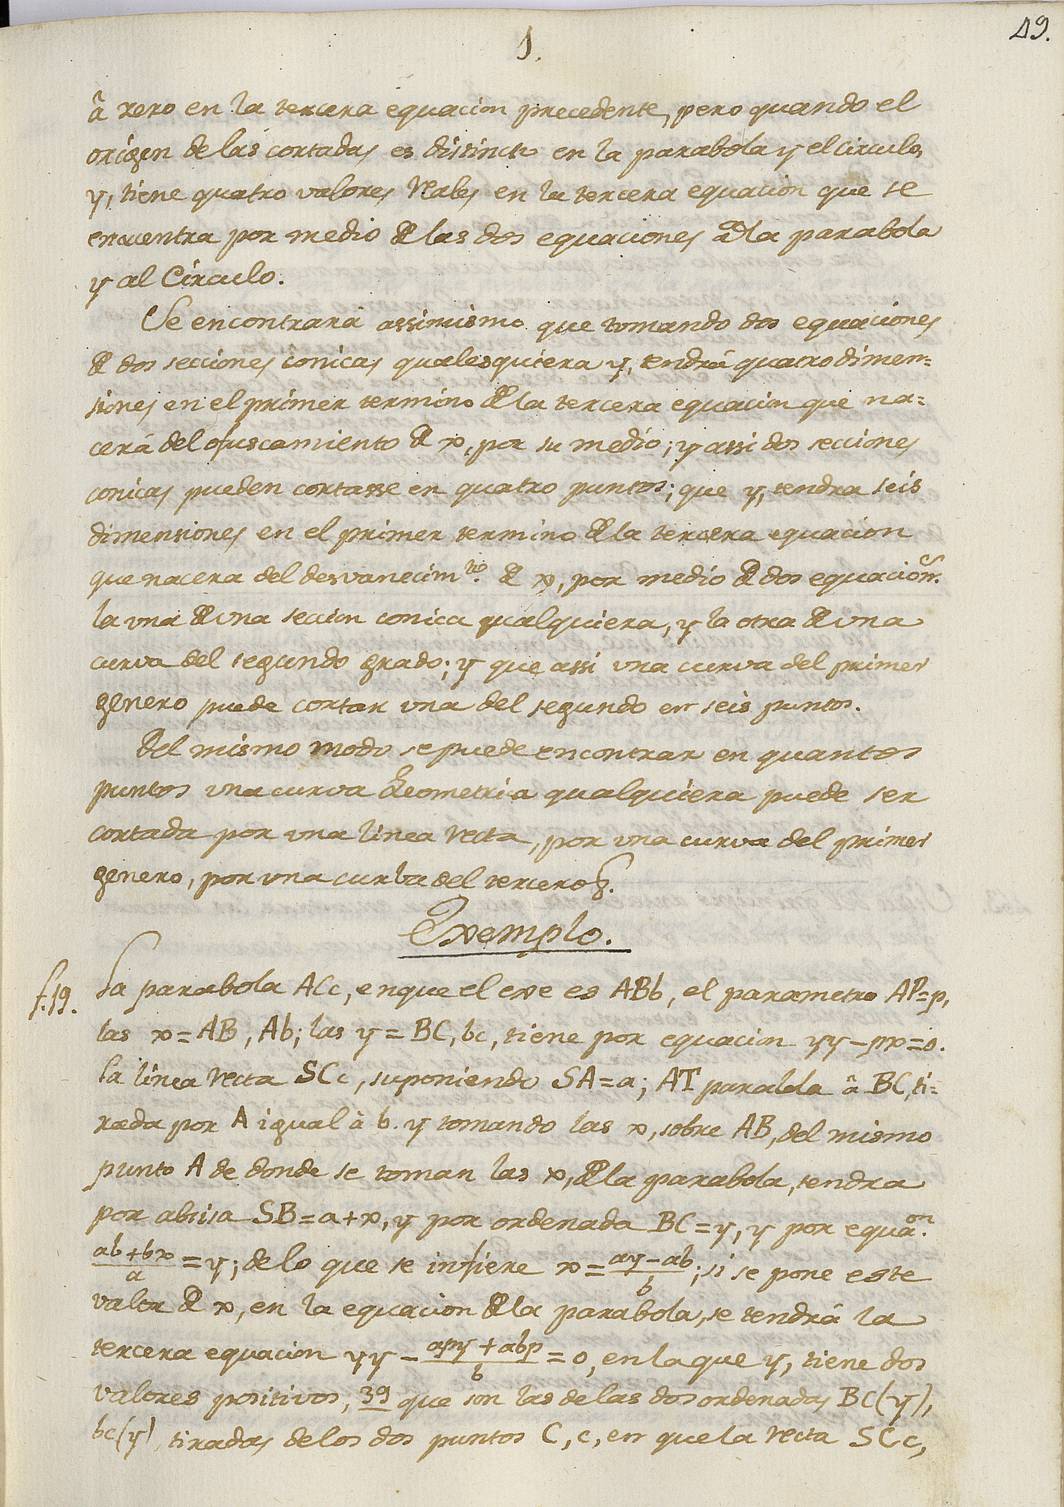 49.
1.
â xero en la tercera equacion precedente, pero quando el
origen de las cortadas es distincto en la parabola y el circulo,
y, tiene quatro valores reales en la tercera equacion que se
encuentra por medio de las dos equaciones â la parabola
y al Circulo.
Se encontrará assimismo que tomando dos equaciones
de dos secciones cônicas qualesquiera y, tendrá quatro dimen=
siones en el primer termino de la tercera equacion que na=
cerá del ofuscamiento de x, por su medio; y assi dos secciones
conicas pueden cortasse en quatro puntos; que y, tendra seis
dimensiones en el primer termino de la tercera equacion
que nacera del desvanecim.to de x, por medio de dos equacio.s
la una de una seccion conica qualquiera, y la otra de una
curva del segundo grado; y que assi una curva del primer
genero puede cortar una del segundo en seis puntos.
Del mismo modo se puede encontrar en quantos
puntos una curva Geometrica qualquiera puede ser
cortada por una linea recta, por una curva del primer
genero, por una curba del tercero &.
Exemplo.
f.19. La parabola ACc, en que el exe es ABb, el parametro AP=p,
las x=AB, Ab; las y=BC, bc, tiene por equacion yy-px=0.
La linea recta SCc, suponiendo SA=a; AT paralela â BC, ti=
rada por A igual à b. y tomando las x, sobre AB, del mismo
punto A de donde se toman las x, de la parabola, tendra
por abcisa SB=a+x, y por ordenada BC=y, y por equa.on
ab+bx/a = y; de lo que se infiere x= ay-ab/b; si se pone este
valor de x, en la equacion de la parabola, se tendrá la
tercera equacion yy - apy + abp/b = 0, en la que y, tiene dos
valores positivos, 39 que son las de las dos ordenadas BC(y),
bc(y) tiradas de los dos puntos C, c, en que la recta SCc,